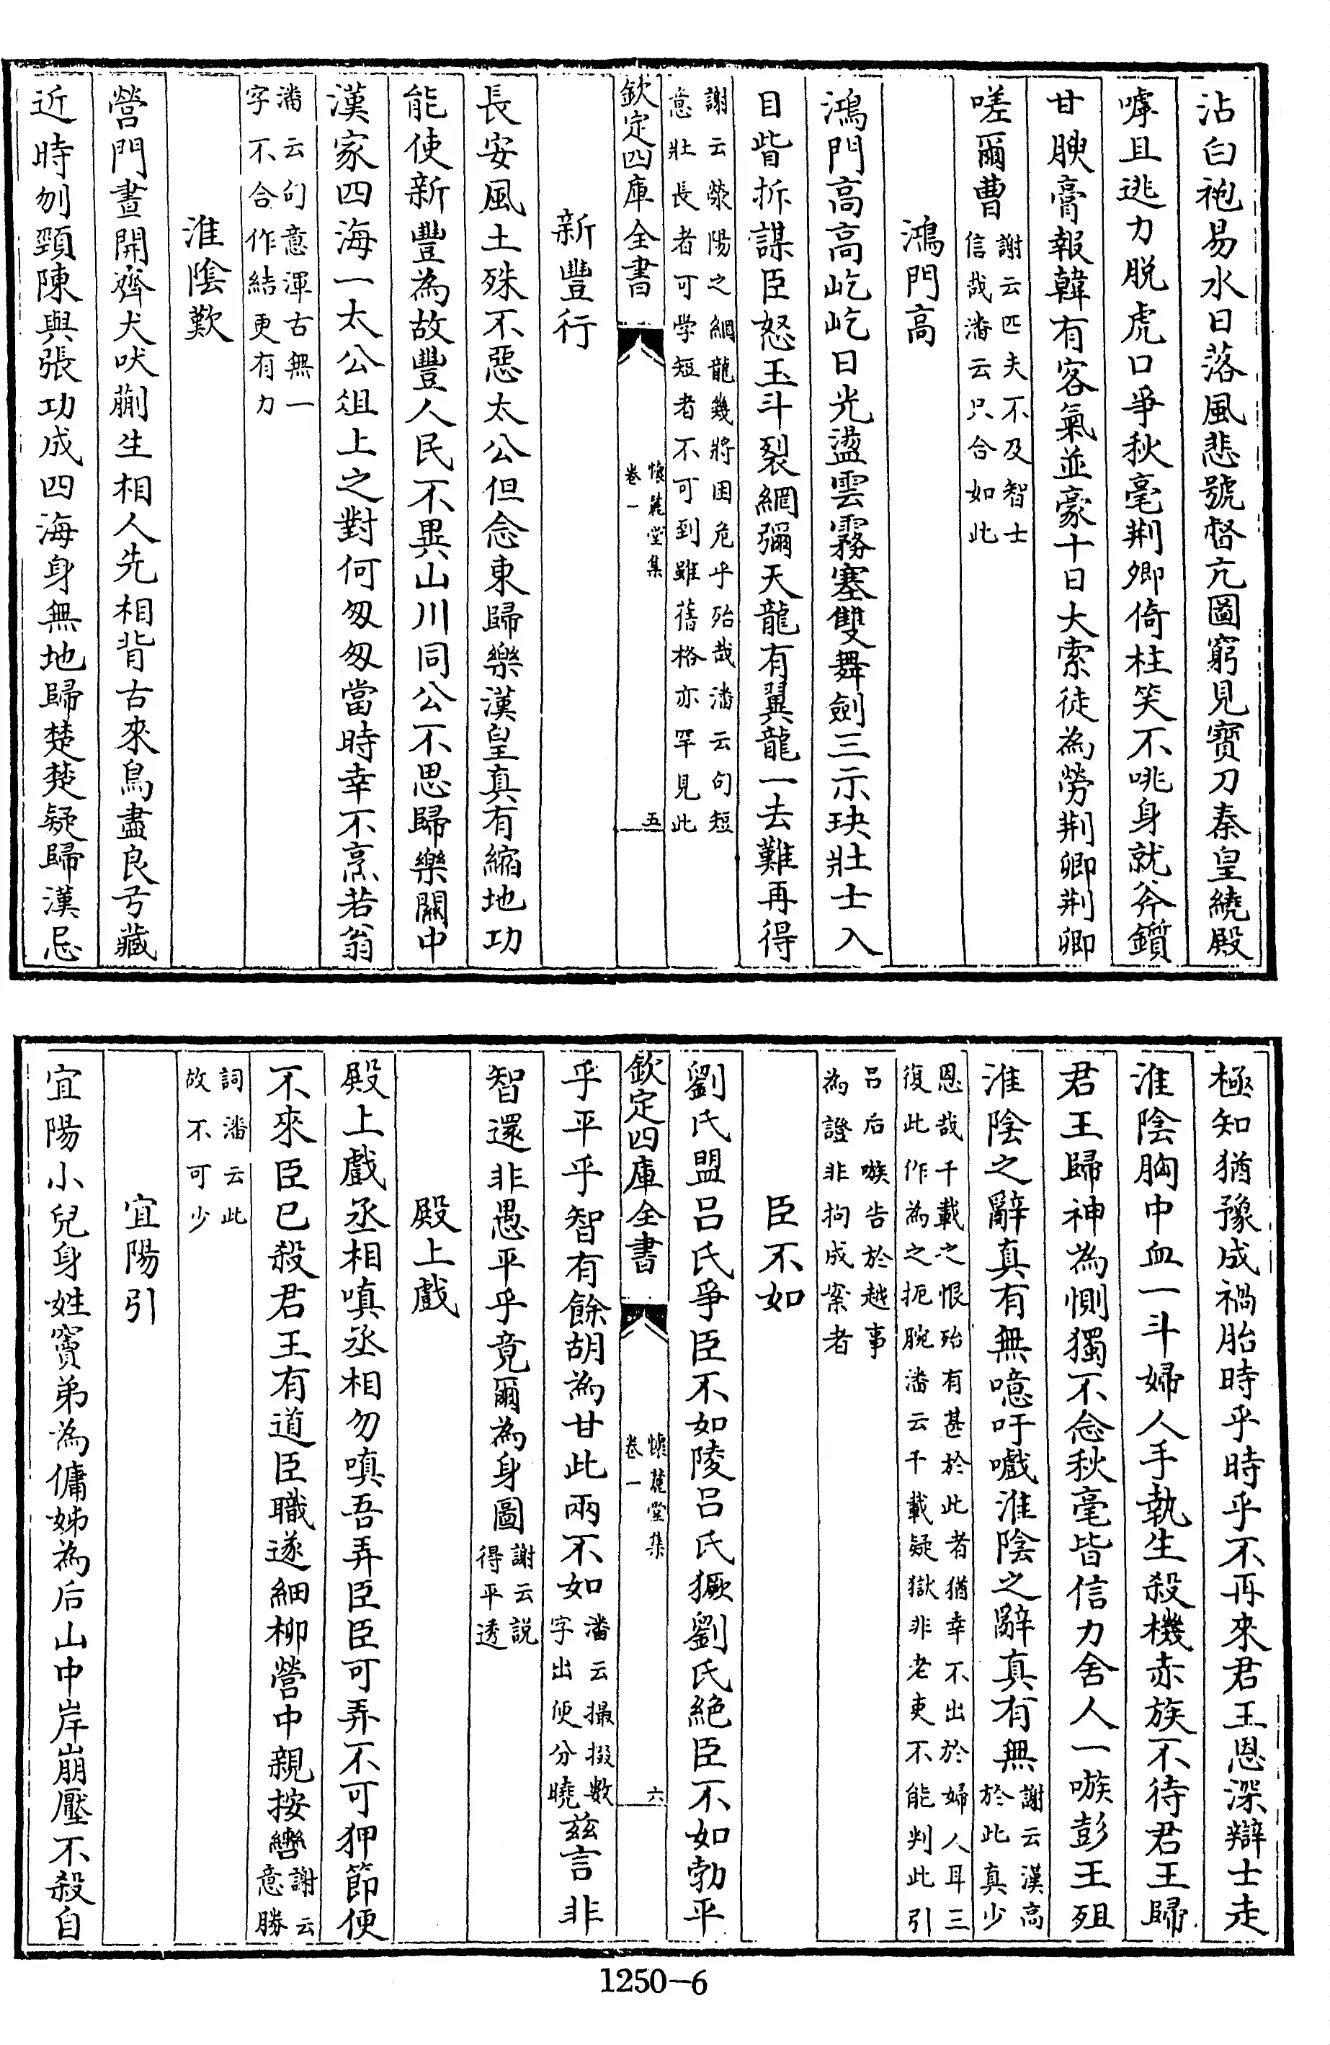 沾白袍易水日落風悲號督亢圖窮見寶刀秦皇繞殿
嘑且逃力脱虎口爭秋毫荆卿倚柱笑不咷身就斧鑕
甘腴膏報韓有客氣並豪十日大索徒為勞荆卿荆卿
嗟爾曹謝云匹夫不及智士信哉潘云只合如此
鴻門高
鴻門高高屹屹日光盪雲霧塞雙舞劍三示玦壯士入
目眥拆謀臣怒玉斗裂網彌天龍有翼龍一去難再得
謝云滎陽之網龍幾將困危乎殆哉潘云句短
意壯長者可學短者不可到雖舊格亦罕見此
欽定四庫全書 懷麓堂集 卷一 五
新豐行
長安風土殊不惡太公但念東歸樂漢皇真有縮地功
能使新豐為故豐人民不異山川同公不思歸樂關中
漢家四海一太公俎上之對何匆匆當時幸不烹若翁
潘云句意渾古無一
字不合作結更有力
淮陰歎
營門晝開齊犬吠蒯生相人先相背古來鳥盡良弓藏
近時刎頸陳與張功成四海身無地歸楚楚疑歸漢忌
極知猶豫成禍胎時乎時乎不再來君王恩深辯士走
淮陰胸中血一斗婦人手執生殺機赤族不待君王歸
君王歸神為惻獨不念秋毫皆信力舍人一嗾彭王殂
淮陰之辭真有無噫吁嚱淮陰之辭真有無謝云漢高於此真少
恩哉千載之恨殆有甚於此者猶幸不出於婦人耳三
復此作為之扼腕潘云千載疑獄非老吏不能判此引
吕后嗾告於越事
為證非拘成案者
臣不如
劉氏盟吕氏爭臣不如陵吕氏獗劉氏絶臣不如勃平
欽定四庫全書 懷麓堂集 卷一 六
乎平乎智有餘胡為甘此兩不如潘云撮掇數字出便分曉兹言非
智還非愚平乎竟爾為身圖謝云説得平透
殿上戲
殿上戲丞相嗔丞相勿嗔吾弄臣臣可弄不可狎節便
不來臣已殺君王有道臣職遂細柳營中親按轡謝云意勝
詞潘云此
故不可少
宜陽引
宜陽小兒身姓竇弟為傭姊為后山中岸崩壓不殺自
1250-6